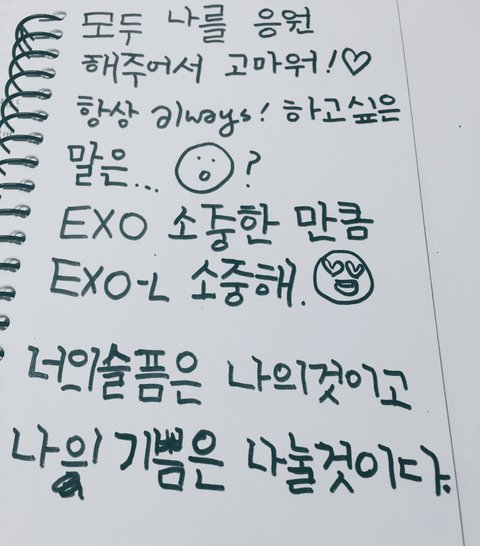 모두 나를 응원
해주어서 고마워!♡
항상 always! 하고싶은
말은... ?
EXO 소중한 만큼
EXO-L 소중해.
너의슬픔은 나의것이고
나의 기쁨은 나눌것이다.